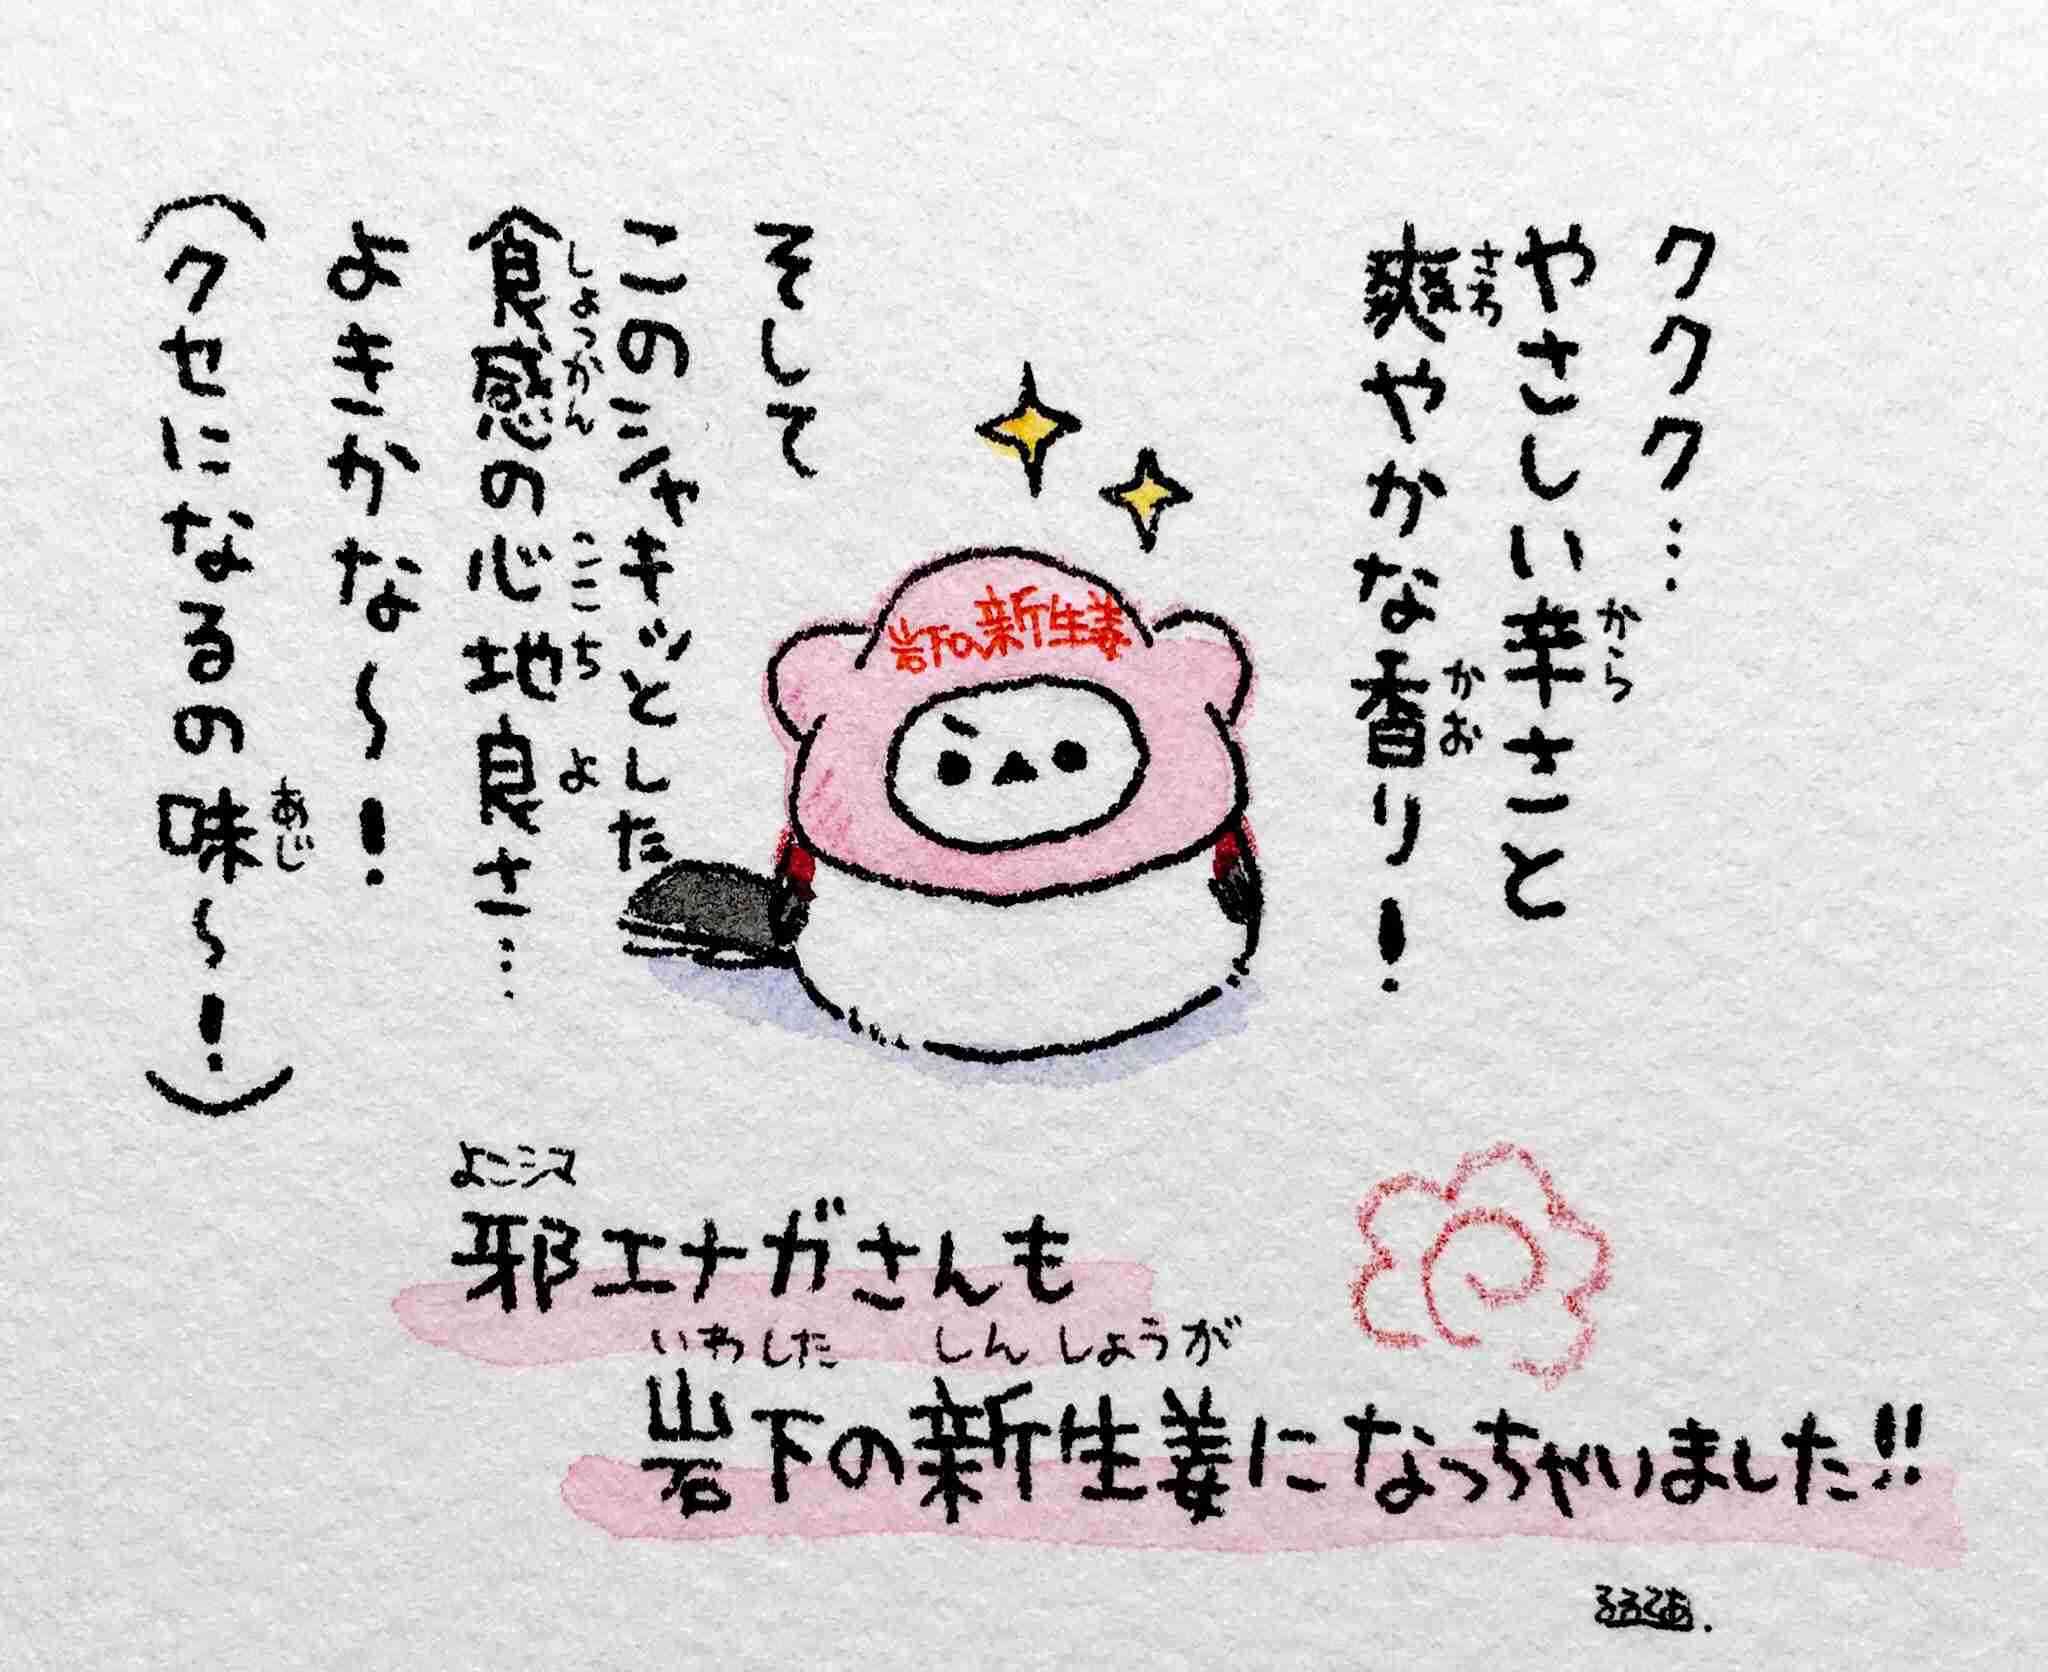 ククク…
やさしい辛さと
から
爽やかな香り！
さわ
かお
そして
このシャキッとした
食感の心地良さ…
しょっかん
ここち
よ
よきかな～！
（クセになるの味～！）
あじ
岩下の新生姜
よこシマ
邪エナガさんも
いわした しんしょうが
岩下の新生姜になっちゃいました!!
るるてあ.